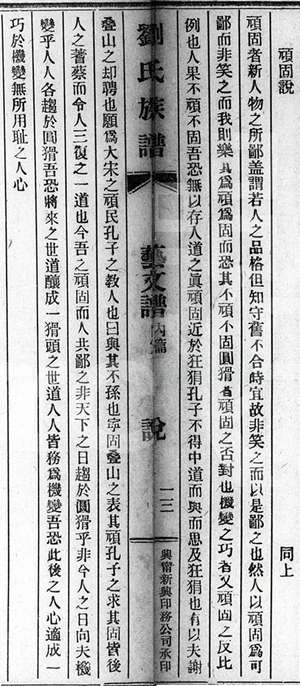 頑固說
同上
頑固者新人物之所鄙蓋謂若人之品格但知守舊不合時宜故非笑之而以是鄙之也然人以頑固爲可
鄙而非笑之而我則樂其爲頑爲固而恐其不頑不固圓猾者頑固之否對也機變之巧者又頑固之反比
例也人果不頑不固吾恐無以存人道之眞頑固近於狂狷孔子不得中道而與而思及狂狷也有以夫謝
劉氏族譜
藝文譜
內篇
說
一二
興甯新興印務公司承印
叠山之却聘也願爲大宋之頑民孔子之敎人也曰與其不孫也寧固叠山之表其頑孔子之求其固皆後
人之蓍蔡而令人三復之一道也今吾之頑固而人共鄙之非天下之日趨於圓猾乎非今人之日向夫機
變乎人人各趨於圓猾吾恐將來之世道釀成一猾頭之世道人人皆務爲機變吾恐此後之人心適成一
巧於機變無所用耻之人心